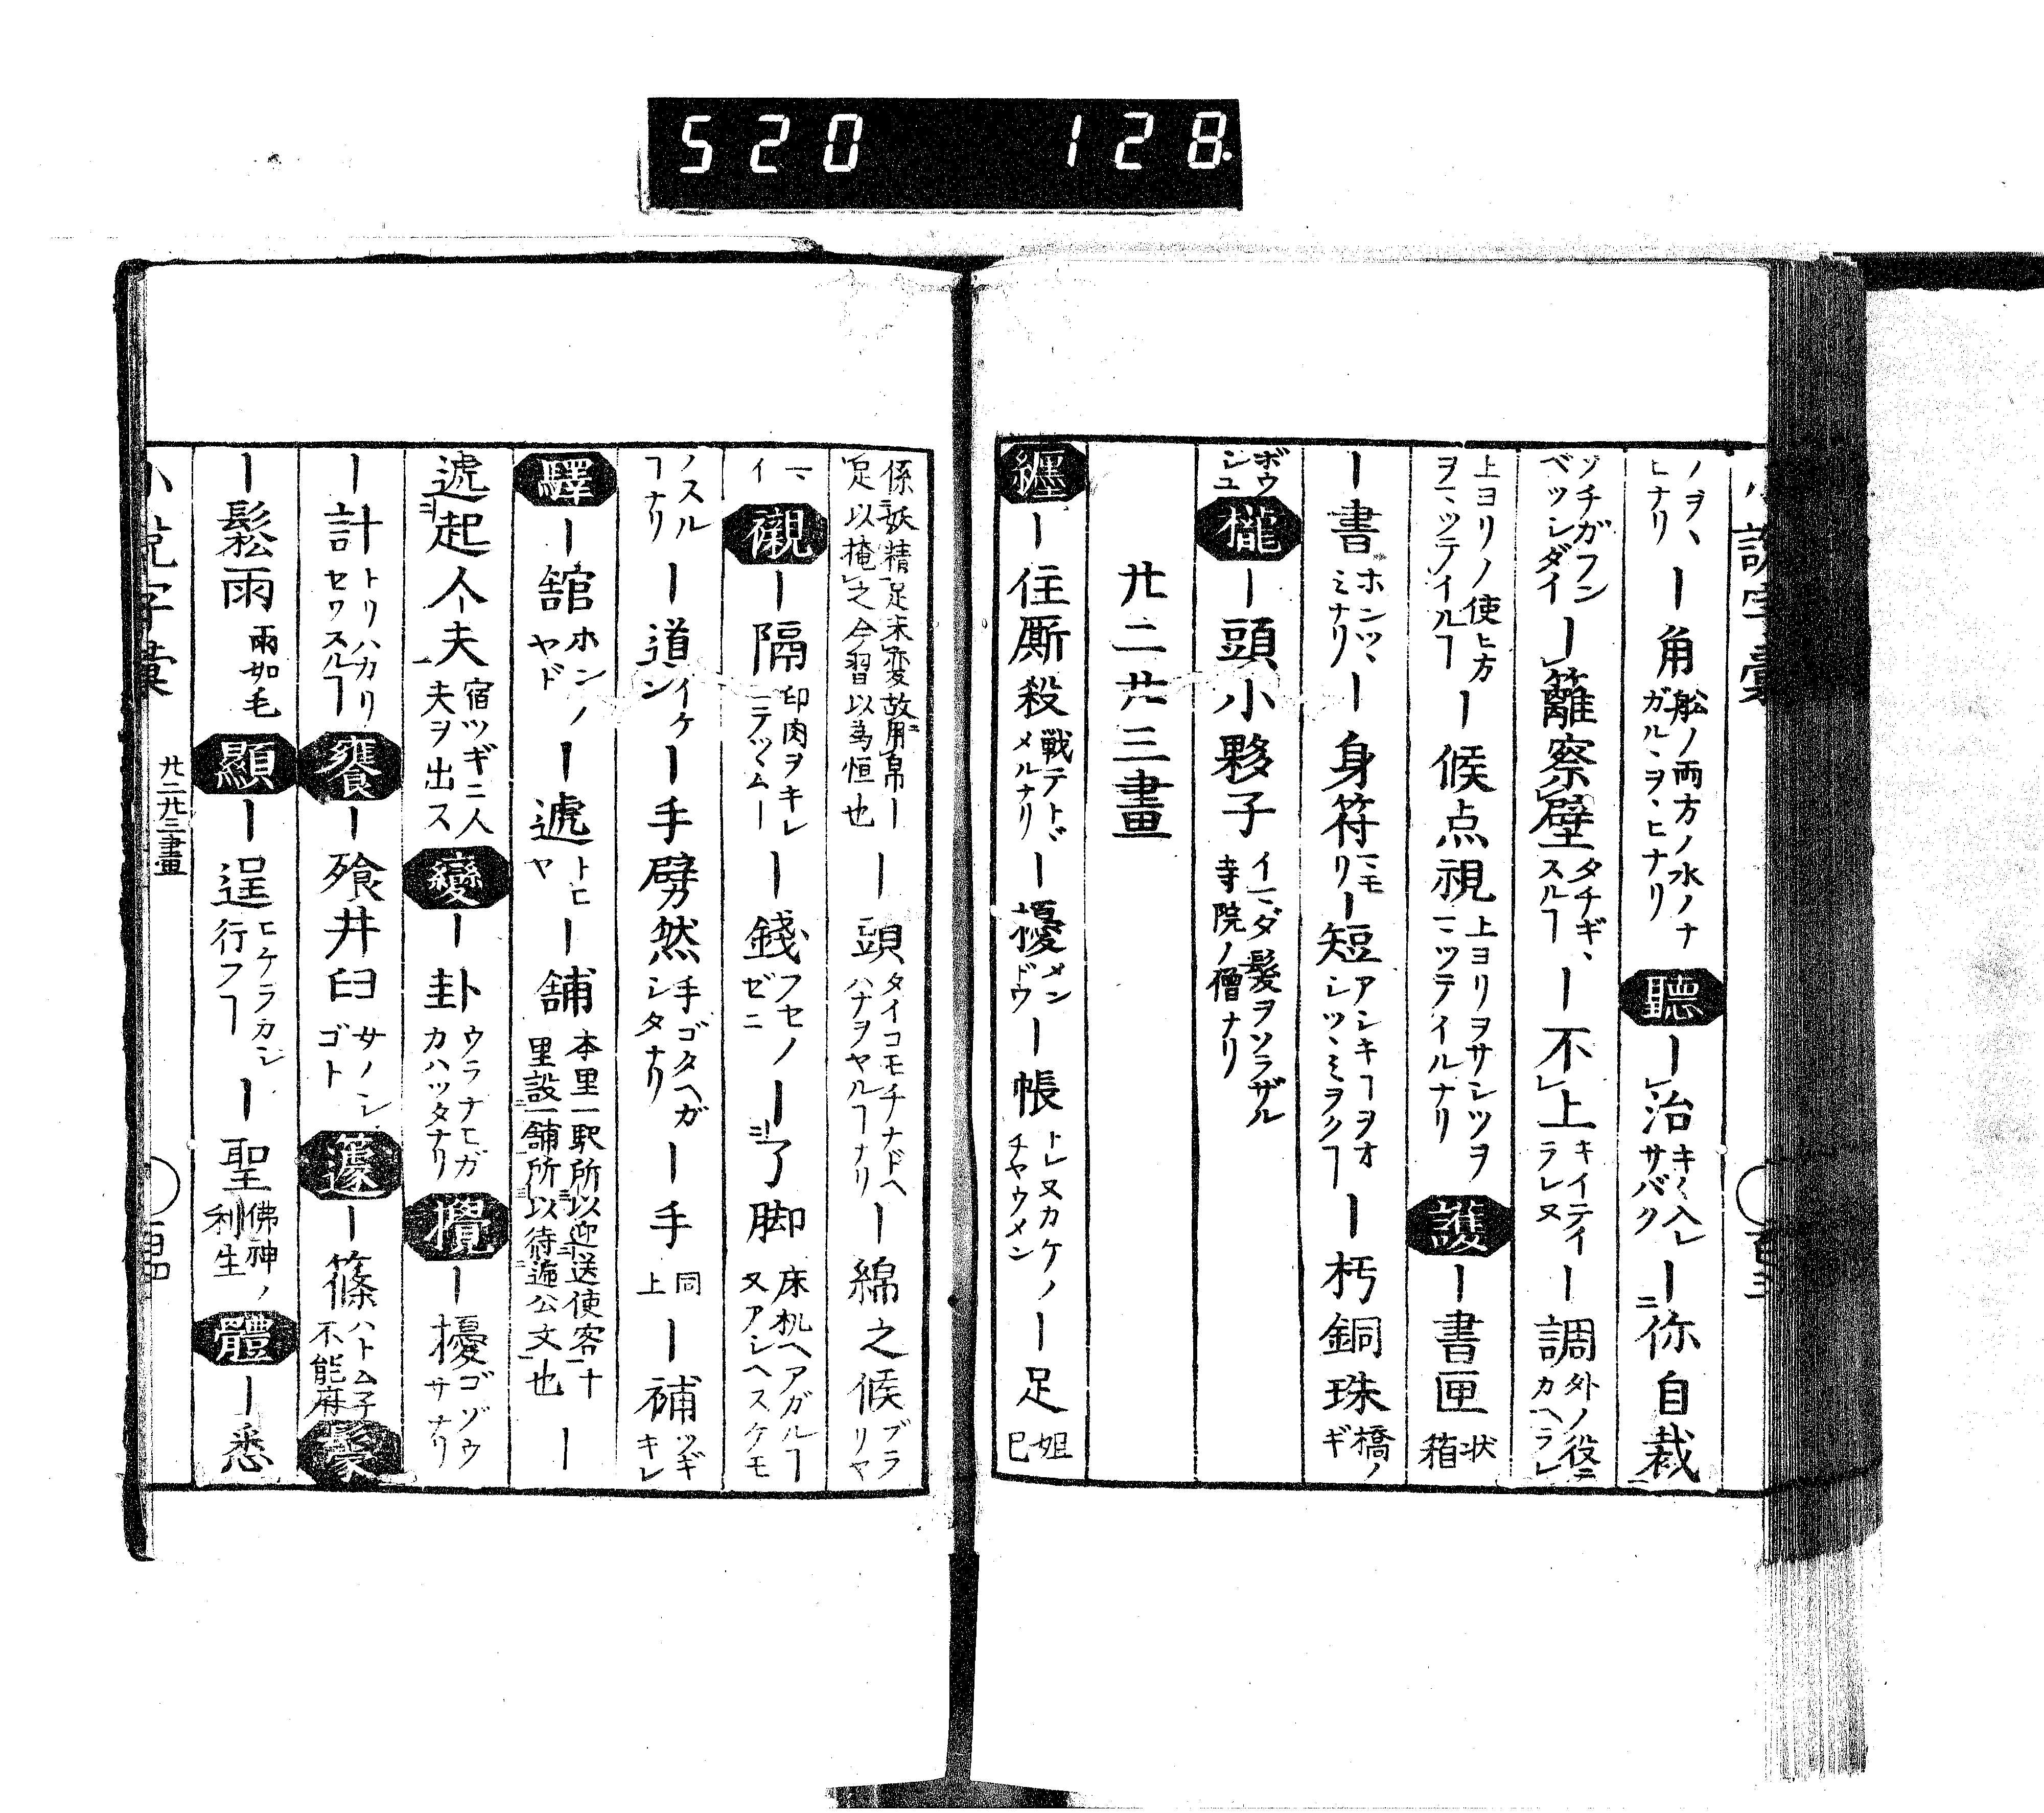 520 128
ノヲヽヒナリ ー角 舩ノ両方ノ水ノナガルヽヲヽヒナリ 聽 ー治 キヽ入レサバク ー你自裁
ソチガフンベツシダイ ー籬察壁 タチギヽスルヿ ー不上 キイテイラレヌ ー調 外ノ役ニカヘラレ
上ヨリノ使ヒ方ヲマツテイルヿ ー候点視 上ヨリヲサシツヲマツテイルナリ 護 ー書匣 状箱
ー書 ホンツヽミナリ ー身符 マモリ ー短 アシキヿヲオシツヽミヲクヿ ー朽銅珠 橋ノギ
ボウシユ 櫳 ー頭小夥子 イマダ髮ヲソラザル寺院ノ僧ナリ
廿二廿三畫
纏 ー住厮殺 戦テトヾメルナリ ー擾 メンドウ ー帳 トレヌカケノチヤウメン ー足 妲巳
係妖精足未変故用帛ー足以掩之今習以為恒也 ー頭 タイコモチナドヘハナヲヤルヿナリ ー綿之候 ブラリヤ
マイ 襯 ー隔 印肉ヲキレニテツヽムー ー錢 フセノゼニ ー了脚 床机ヘアガルヿ又アシヘスケモ
ノスルヿナリ ー道 イケン ー手劈然 手ゴタヘガシタナリ ー手 同上 ー補 ツギキレ
驛 ー舘 ホンノヤド ー遞 トヒヤ ー舖 本里一駅所以迎送使客十里設一舖所以待遞公文也 ー
遞起人夫 宿ツギニ人夫ヲ出ス 變 ー卦 ウラナヒガカハツタナリ 攪 ー擾 ゴゾウサナリ
ー計 トリハカリセワスルヿ 饔 ー飱井臼 サノシゴト 籧 ー篨 ハトムネ不能俯 鬟
ー鬆雨 雨如毛 顯 ー逞 ヒケラカシ行フヿ ー聖 佛神ノ利生 體 ー悉
廿二廿三畫